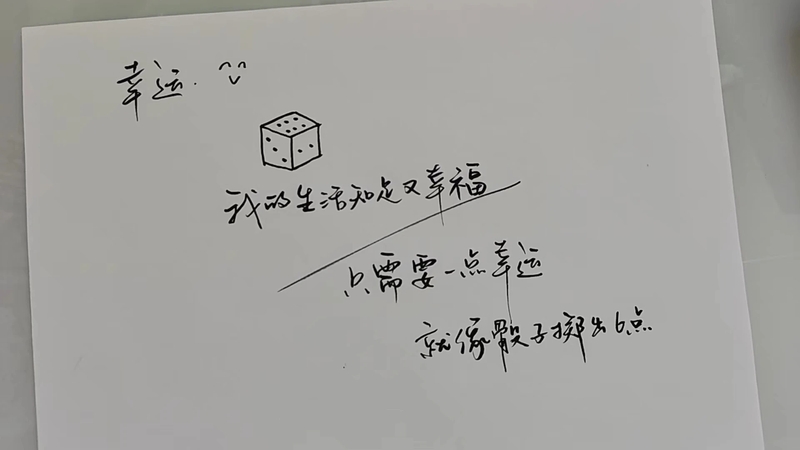 幸运.
我的生活知足又幸福
只需要一点幸运
就像骰子掷出6点